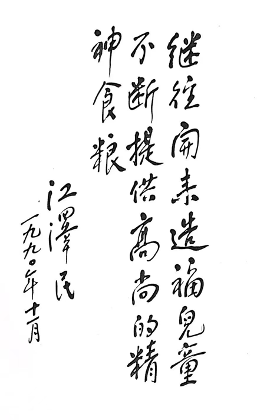 继往开来造福兒童
不断提供高尚的精
神食粮
江澤民
一九九〇年十一月